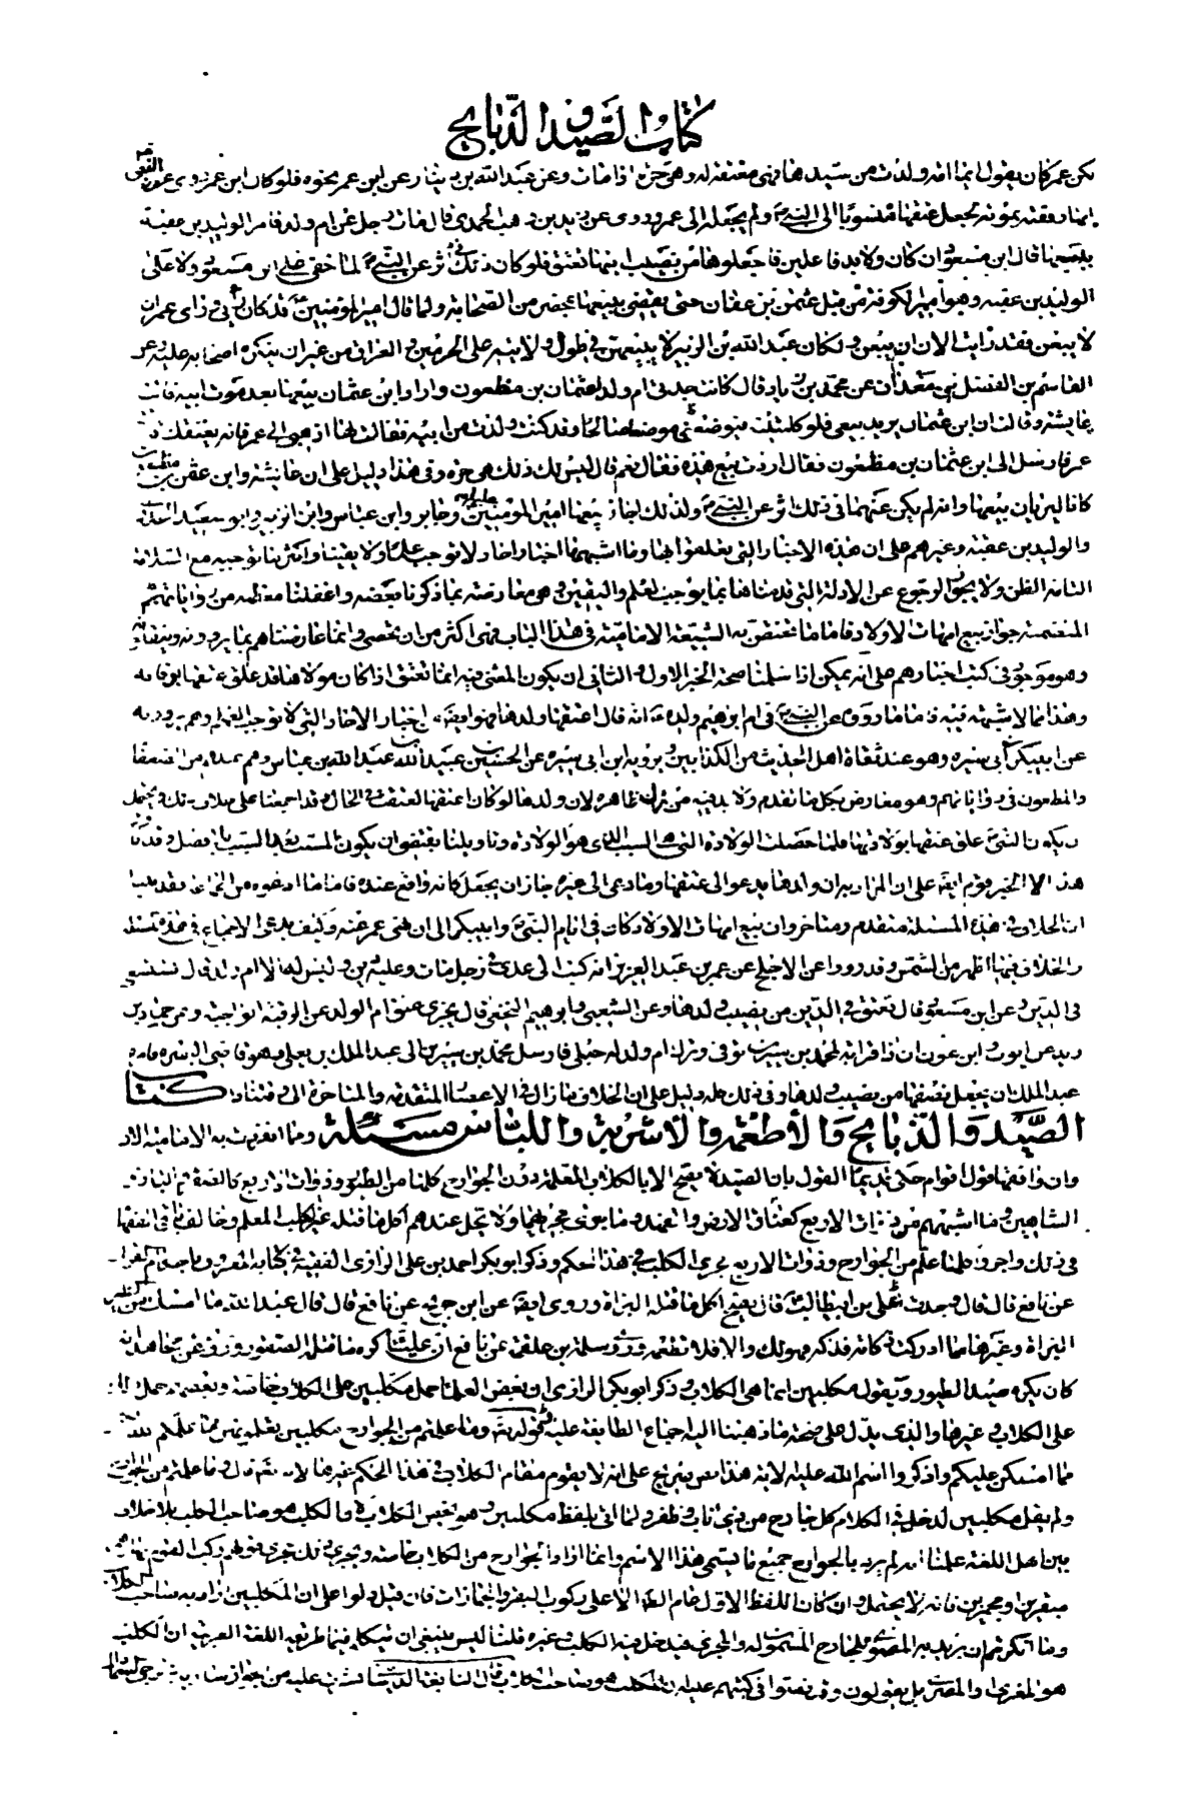 كتاب الصيد و الذبايح
عمر كان يقول ايما امة ولدت من سيدها فهي معتقة له وهي حرة اذا مات وعن عبد الله بن دينار عن ابن عمر بخوه فلو كان ابن عمر روى
ولم يجعله الى عمر وروى عن زيد بن وهب قال مات رجل عن ام ولد فامر الوليد بن عقبة
ببيعها قال ابن مسعود ان كان ولا بد فاعلين فاجعلوها من نصيب ابنها تعتق فلو كان ذلك اثر عن النبي لما خفى على ابن مسعود ولا على
الوليد بن عقبه وهو امير الكوفة من قبل عثمن بن عفان حتى يقضى ببيعها بمحضر من الصحابة ولما قال امير المؤمنين قد كان رايي وراى عمر ان
لا يبعن فقد رايت الان ان يبعن ولكان عبد الله بن الزبير لا يبيعهن في طول ولايته على الحرمين والعراق من غير ان ينكره اصحابه عليه وعن
القاسم بن الفضل بن معدان عن محمد بن زياد قال كانت جدتى ام ولد لعثمان بن مظعون واراد ابن عثمان بيعها بعد موت ابيه فاتت
عايشة وقالت ان ابن عثمان يريد بيعى فلو كلمته فوضعنى موضعا صالحا وقد كنت ولدت من ابيه فقالت لها اذهبى الى عمر فانه يعتقك
عمر فارسل الى ابن عثمان بن مظعون فقال اردت بيع هذه فقال نعم قال ليس لك ذلك هي حرة وفى هذا دليل على ان عايشة وابن عثمن
كانا يريان بيعها وانه لم يكن عندهما في ذلك اثر عن النبي ولذلك اجاز بيعها امير المؤمنين وجابر وابن عباس وابن الزبير وابو سعيد
والوليد بن عقبة وغيرهم على ان هذه الاخبار التي تعلقوا بها وما اشبهها اخبار احاد لا توجب علما ولا يقينا واكثر ما توجبه مع السلامة
التامة الظن ولا يجوز الرجوع عن الادلة التى قدمناها بما يوجب العلم واليقين وهي معارضة بما ذكرنا بعضه واغفلنا معظمه من رواياتهم
المتضمنة جواز بيع امهات الاولاد فاما ما تختص به الشيعة الامامية في هذا الباب فهي اكثر من ان تحصى وانما عارضناهم بما يروونه
وهو موجود في كتب اخبارهم على انه يمكن اذا سلمنا صحة الخبر الاول والثانى ان يكون المعنى فيه انها تعتق اذا كان مولاها قد علق عتقها بوفاته
وهذا مما لا شبهة فيه فاما ما رووه عن النبي في ام ابرهيم ولده انه قال اعتقها ولدها فهو ايضا من اخبار الاحاد التي لا توجب العلم وهم يروونه
عن ابى بكر بن ابى سبره وهو عند ثقاة اهل الحديث من الكذابين ويرويه ابن ابى سبره عن الحسين بن عبيد الله بن عبد الله بن عباس وهم من الضعفا
والمطعون فى رواياتهم وهو معارض بكل ما تقدم ولا بد فيه من ترك ظاهره لان ولدها لو كان اعتقها لعتقت في الحال وقد اجمعنا على خلاف ذلك ويحتمل
ان يكون النبى علق عتقها بولادتها فلما حصلت الولادة التى هى السبب الذى هو الولادة
هذا الا الخبر فهم ايضا على ان المراد به ان ولدها يدعو الى عتقها وما دعى الى غيره جاز ان يجعل كانه واقع عنده فاما ما ادعوه من الاجماع فقد بينا
ان الخلاف في هذه المسئلة متقدم ومتاخر وان بيع امهات الاولاد كان في ايام النبى وابى بكر الى ان نهى عمر عنه وكيف يدعوا الاجماع في هذه المسئلة
والخلاف فيها اظهر من الشمس وقد رووا عن الاجلح عن عمر بن عبد العزيز انه كتب الى عدى في رجل مات وعليه دين وليس له الا ام ولد قال تستسعى
فى الدين وعن ابن مسعود قال تعتق في الدين من نصيب ولدها وعن الشعبى وابرهيم النخعى قال يجزى عتق ام الولد عن الرقبة الواجبة وعن حماد بن
زيد عن ايوب وابن عون ان ذا قرابة لمحمد بن سيرين توفى وترك ام ولد له حبلى فارسل محمد بن سيرين الى عبد الملك بن يعلى وهو قاضى البصره فامره
عبد الملك ان يجعل نصيبها من نصيب ولدها وفى ذلك كله دليل على ان الخلاف ما زال في الاعصار المتقدمة والمتاخرة الى وقتنا هذا كتاب
الصيد والذبايح والاطعمة والاشربة واللباس مسئلة ومما انفردت به الامامية الان
وان وافقها قول اقوام حكى قديما القول بان الصيد لا يصح الا بالكلاب المعلمة دون الجوارح كلها من الطيور وذوات الاربع كالصقر والبازى
الشاهين وما اشبههم من ذوات الاربع كعناق الارض والفهد وما جرى مجراهما ولا يحل عندهم اكل ما قتله غير الكلب المعلم وخالف باقى الفقها
فى ذلك واجروا كلما علم من الجوارح وذوات الاربع مجرى الكلب في هذا الحكم وذكر ابو بكر احمد بن على الرازى الفقيه في كتابه المعروف باحكام القران
عن نافع قال قال وجدت لعلى بن ابيطالب قال لا يصلح اكل ما قتله البزاة وروى ايضا عن ابن جريح عن نافع قال قال عبد الله ما امسك من الطير
البزاة وغيرها مما ادركت ذكاته فذكيته فهو لك والا فلا تطعمه وروى سلمة بن علقمة عن نافع ان عليا كره ما قتل الصقور وروى عن مجاهد انه
كان يكره صيد الطيور ويقول مكلبين انما هي الكلاب وذكر ابو بكر الرازى ان بعض العلما حمل مكلبين على الكلاب خاصة وبعضهم حمل ذلك
على الكلاب وغيرها والذى يدل على صحة ما ذهبنا اليه اجماع الطايفة عليه وقوله تعالى وما علمتم من الجوارح مكلبين تعلمونهن مما علمكم الله
مما امسكن عليكم واذكروا اسم الله عليه لانه هذا نص صريح على انه لا يقوم مقام الكلاب في هذا الحكم غيرها لانه تعالى قال وما علمتم من الجوارح
ولم يقل مكلبين لدخل في الكلام كل جارح من ذى ناب وظفر ولما اتى بلفظ مكلبين وهو يخص الكلاب لان المكلب هو صاحب الكلب بلا خلاف
بين اهل اللغة علمنا انه لم يرد بالجوارح جميع ما يستحق هذا الاسم وانما اراد الجوارح من الكلاب خاصة ويجرى ذلك مجرى قولهم ركب القوم
مبقرين ومجمزين فانه لا يحتمل وان كان اللفظ الاول عام الظاهر الا على ركوب البقر والجمازات فان قيل دلوا على ان المكلبين اراد به صاحب الكلاب
وما انكرتم ان يريد به المضرى للجارح الممرن له والمجرى فيدخل فيه الكلب وغيره قلنا ليس ينبغى ان يتكلم فيما طريقه اللغة العربية ان المكلب
هو المغرى والمضرى بل يقولون وقد نصوا في كتبهم عليه ان المكلب هو صاحب الكلاب قال النابغة الذبيانى